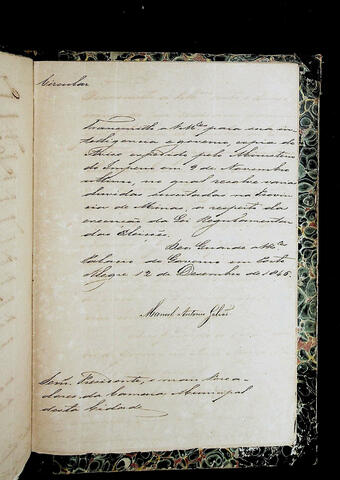 Circular
Transmitto a VMces para sua in
telligencia e governo, copia do
Aviso expedido pelo Ministerio
do Imperio em 9 de Novembro
ultimo, no qual resolve varias
duvidas suscitadas na Provin
cia de Minas a respeito da
execução da Lei Regulamentar
das Eleições.
Deos Guarde a VMces
Palacio do Governo em Porto
Alegre 12 de Dezembro de 1846.
Manoel Antonio Galvão
Senr. Presidente, e mais Verea-
dores da Camara Municipal
desta Cidade